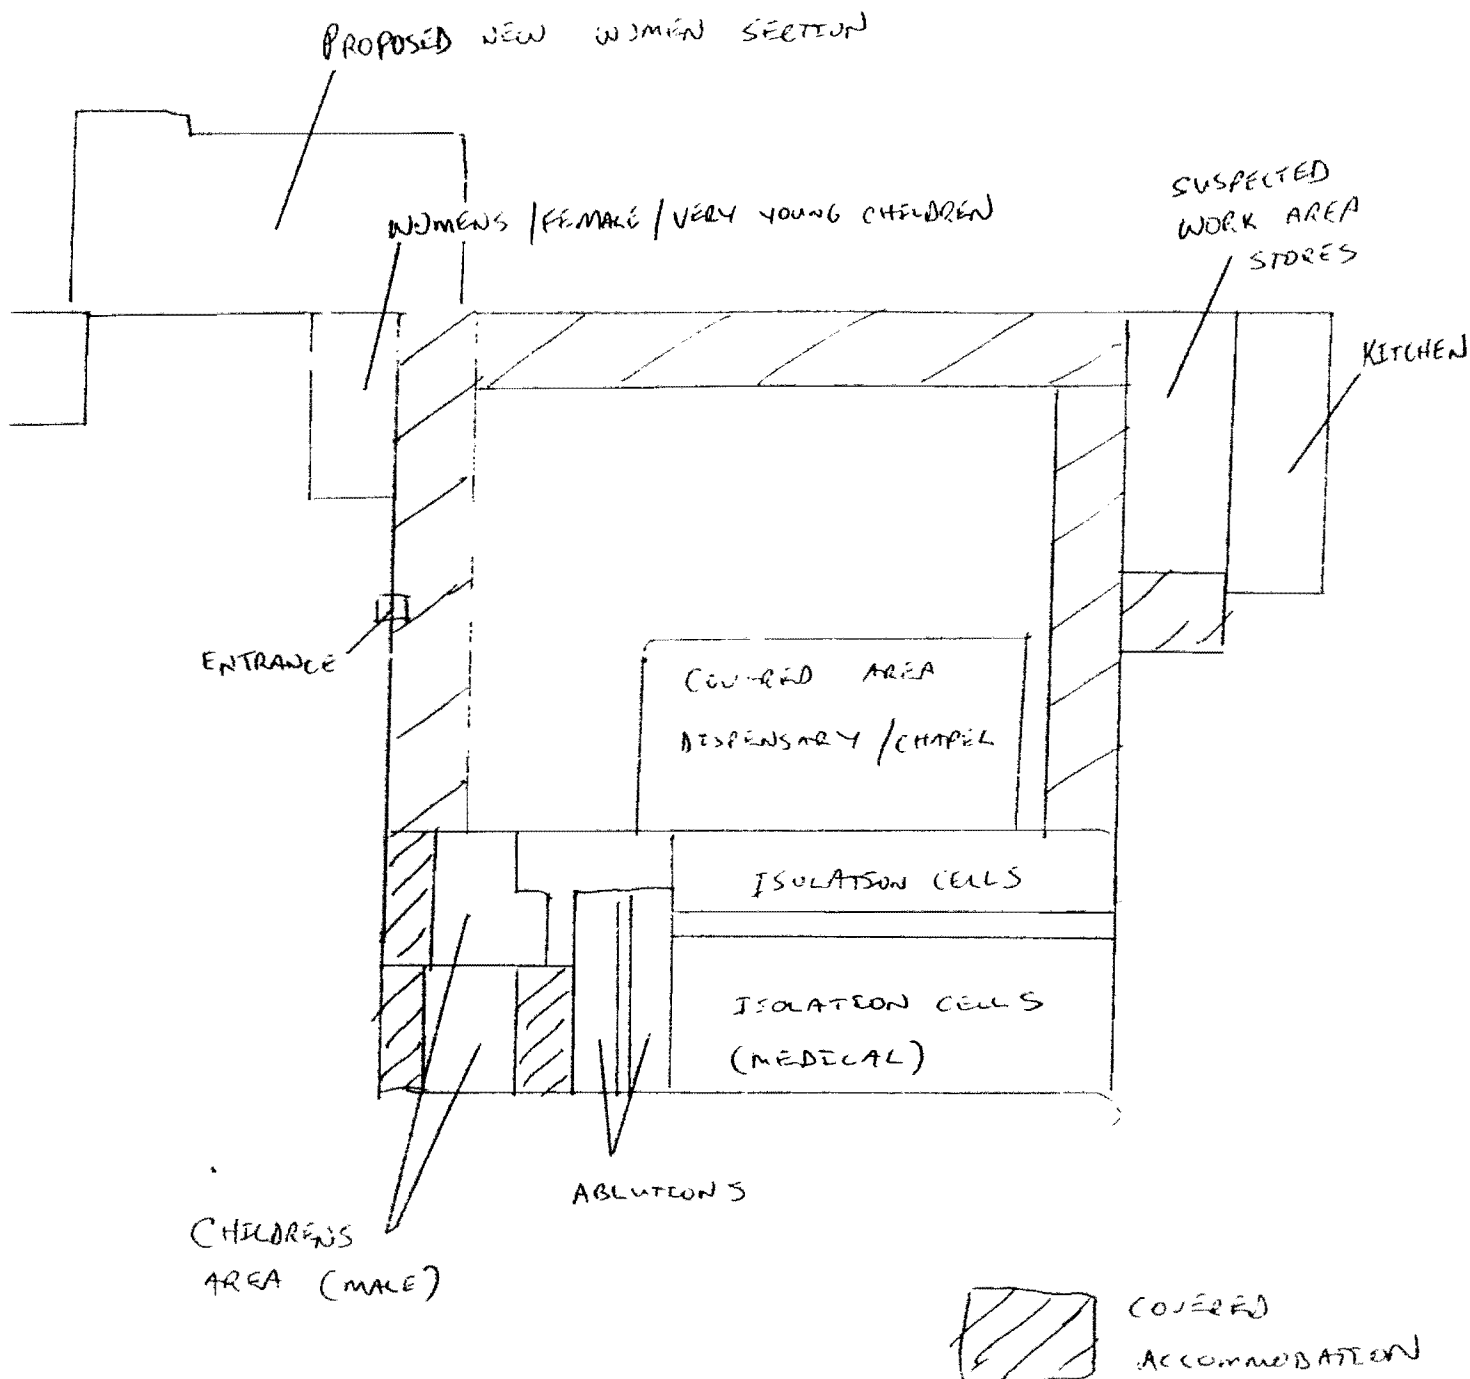 PROPOSED NEW WOMEN SECTION
WOMENS / FEMALE / VERY YOUNG CHILDREN
SUSPECTED
WORK AREA
STORES
KITCHEN
ENTRANCE
COVERED AREA
DISPENSARY / CHAPEL
ISOLATION CELLS
ISOLATION CELLS
(MEDICAL)
ABLUTIONS
CHILDRENS
AREA (MALE)
COVERED
ACCOMMODATION